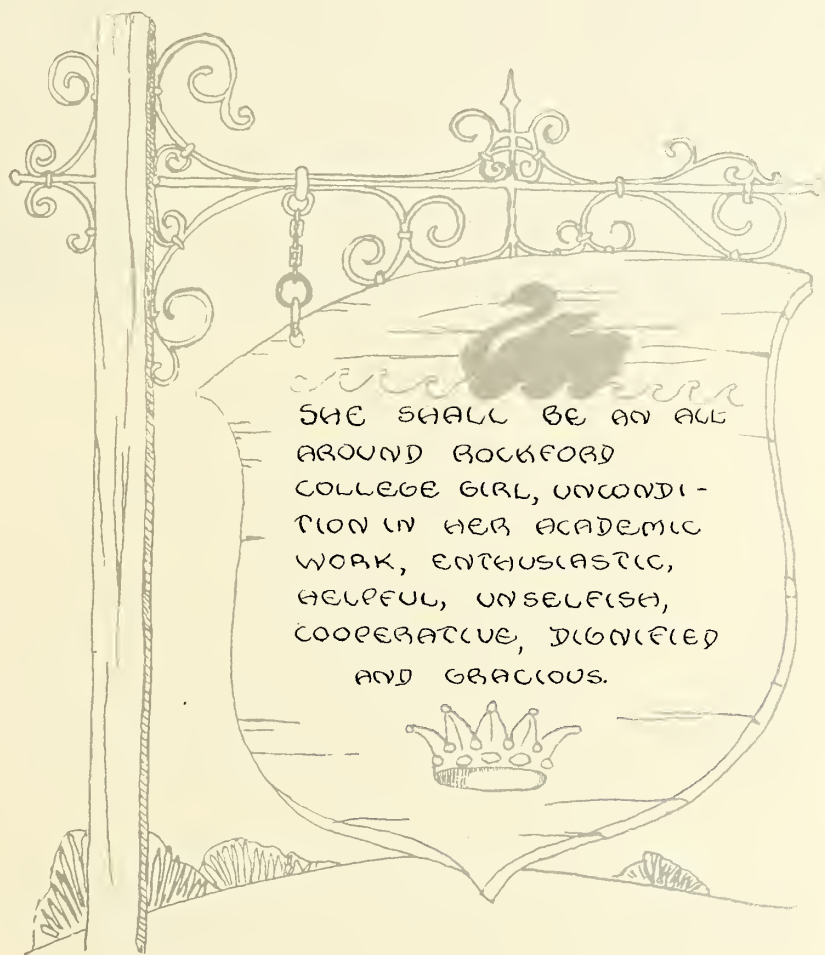 SHE SHALL BE AN ALL
AROUND ROCKFORD
COLLEGE GIRL, UNCONDI-
TION IN HER ACADEMIC
WORK, ENTHUSIASTIC,
HELPFUL, UNSELFISH,
COOPERATIVE, DIGNIFIED
AND GRACIOUS.